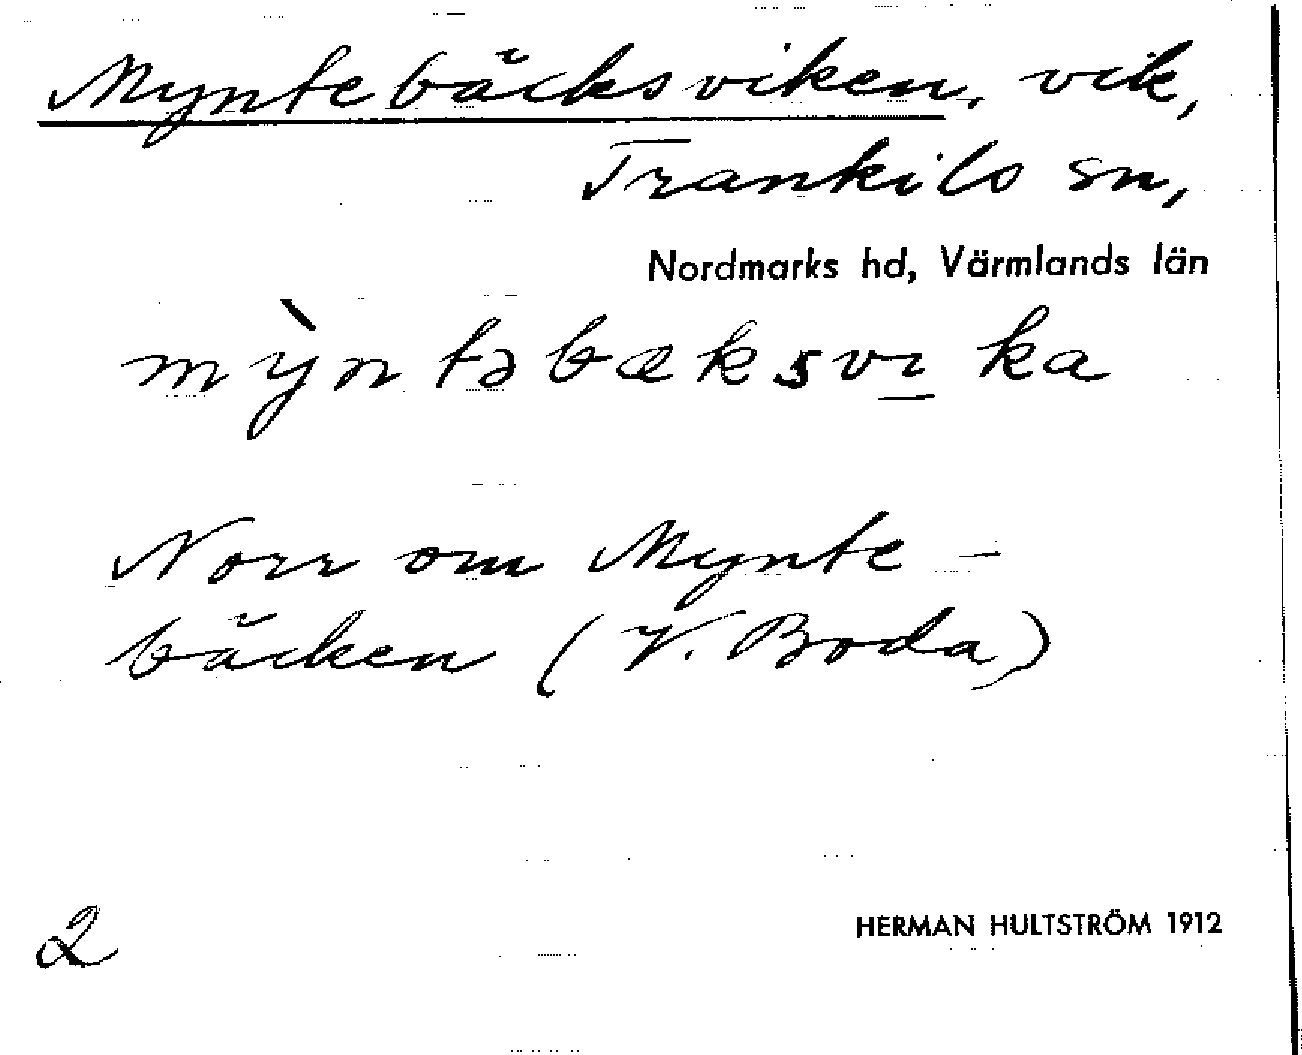 Myntebäcksviken, vik,
Trankils sn,
Nordmarks hd, Värmlands län
mỳntəbæksvi̱ka
Norr om Mynte-
bäcken (V. Boda)
2
HERMAN HULTSTRÖM 1912